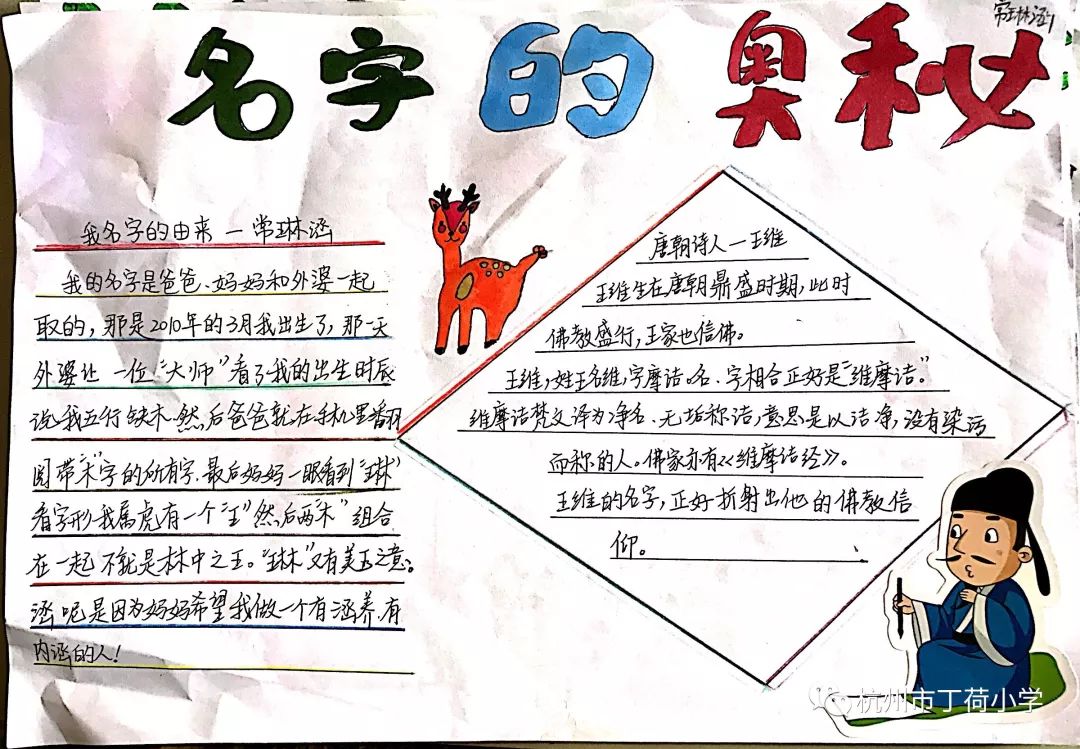 常琳涵
名字的奥秘
我名字的由来一常琳涵
我的名字是爸爸、妈妈和外婆一起
取的，那是2010年的3月我出生了，那一天
外婆让一位“大师”看了我的出生时辰
说我五行缺木.然后爸爸就在手机里翻
阅带“木”字的所有字.最后妈妈一眼看到“琳”
看字形我属虎有一个“王”然后两“木”组合
在一起不就是林中之王。“琳”又有美玉之意；
涵呢是因为妈妈希望我做一个有涵养、有
内涵的人！
唐朝诗人一王维
王维生在唐朝鼎盛时期，此时
佛教盛行，王家也信佛。
王维，姓王名维，字摩诘。名、字相合正好是“维摩诘”。
维摩诘梵文译为净名、无垢称诘，意思是以洁净，没有染污
而称的人。佛家亦有《维摩诘经》。
王维的名字，正好折射出他的佛教信
仰。
杭州市丁荷小学